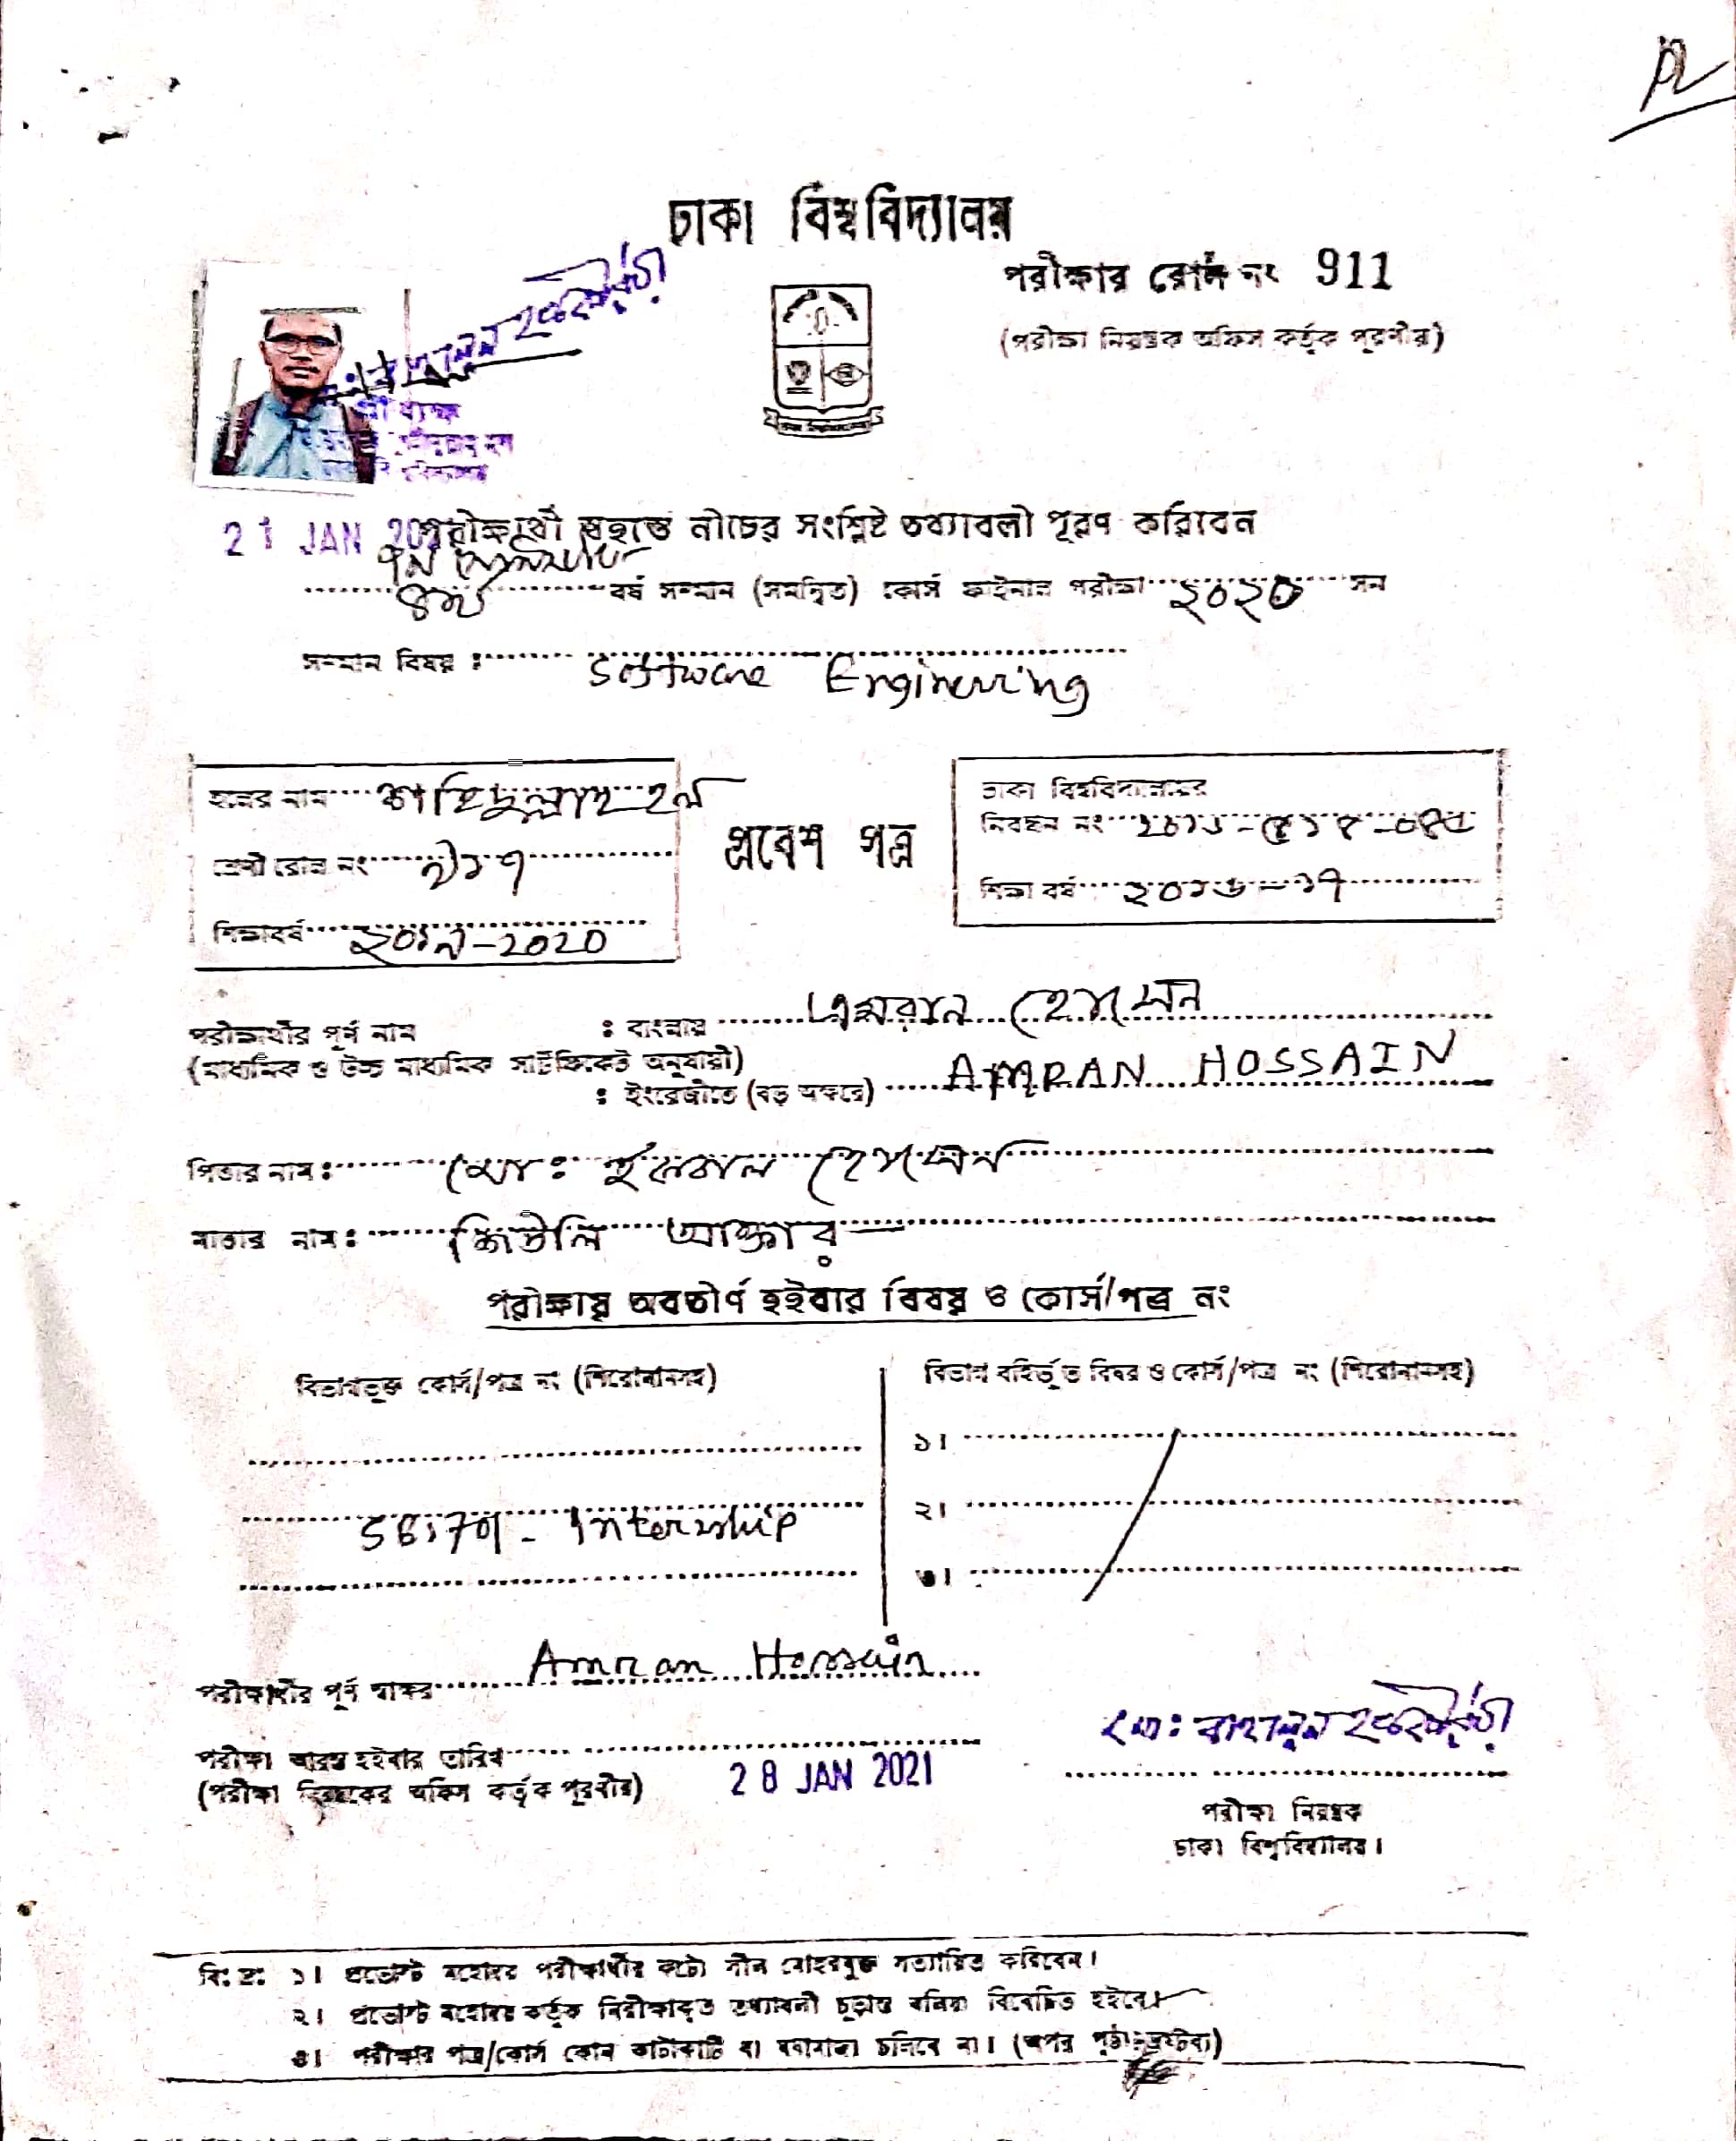 ঢাকা বিশ্ববিদ্যালয়
পরীক্ষার রোল নং 911
(পরীক্ষা নিয়ন্ত্রক অফিস কর্তৃক পূরণীয়)
21 JAN
পরীক্ষার্থী স্বহস্তে নীচের সংশ্লিষ্ট তথ্যাবলী পূরণ করিবেন
৪র্থ বর্ষ সম্মান (সমন্বিত) কোর্স ফাইনাল পরীক্ষা ২০২০ সন
সম্মান বিষয় : Software Engineering
হলের নাম শহিদুল্লাহ হল
শ্রেণী রোল নং ৯১৭
শিক্ষাবর্ষ ২০১৯-2020
প্রবেশ পত্র
ঢাকা বিশ্ববিদ্যালয়ের
নিবন্ধন নং
শিক্ষা বর্ষ ২০১৬-১৭
পরীক্ষার্থীর পূর্ণ নাম : বাংলায় এমরান হোসেন
(মাধ্যমিক ও উচ্চ মাধ্যমিক সার্টিফিকেট অনুযায়ী)
: ইংরেজীতে (বড় অক্ষরে) AMRAN HOSSAIN
পিতার নাম : মোঃ হোসেন
মাতার নাম : শিউলি আক্তার
পরীক্ষায় অবতীর্ণ হইবার বিষয় ও কোর্স/পত্র নং
বিভাগভুক্ত কোর্স/পত্র নং (শিরোনামসহ)
Internship
বিভাগ বহির্ভূত বিষয় ও কোর্স/পত্র নং (শিরোনামসহ)
১।
২।
৩।
পরীক্ষার্থীর পূর্ণ স্বাক্ষর Amran Hossain
পরীক্ষা আরম্ভ হইবার তারিখ
(পরীক্ষা নিয়ন্ত্রকের অফিস কর্তৃক পূরণীয়) 28 JAN 2021
পরীক্ষা নিয়ন্ত্রক
ঢাকা বিশ্ববিদ্যালয়।
বি: দ্র: ১। প্রভোস্ট মহোদয় পরীক্ষার্থীর ফটো সীল মোহরযুক্ত সত্যায়িত করিবেন।
২। প্রভোস্ট মহোদয় কর্তৃক নিরীক্ষাকৃত তথ্যাবলী চূড়ান্ত বলিয়া বিবেচিত হইবে।
৩। পরীক্ষার পত্র/কোর্স কোন কাটাকাটি বা ঘষামাজা চলিবে না। (অপর পৃষ্ঠা দ্রষ্টব্য)